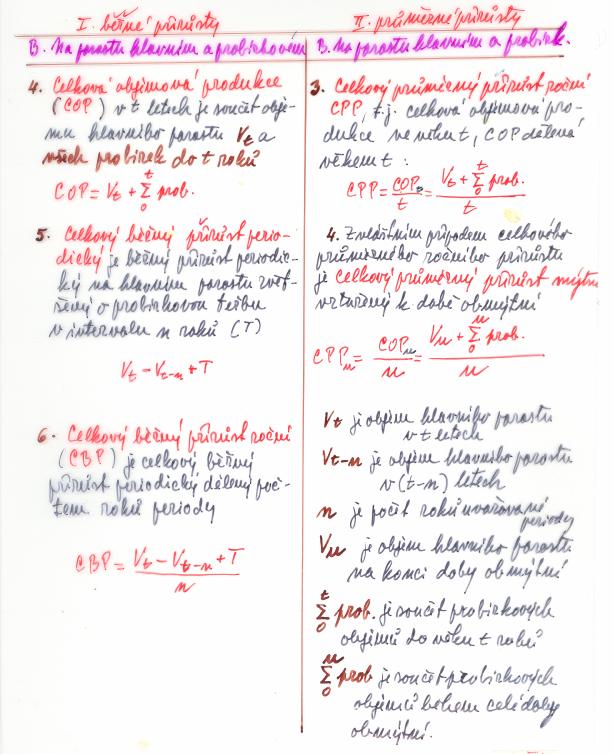 I. běžné přírůsty
B. Na porostu hlavním a probírkovém
4. Celková objemová produkce
(COP) v t letech je součet obje-
mu hlavního porostu Vt a
všech probírek do t roků
COP = Vt + Σ prob.
t
0
5. Celkový běžný přírůst perio-
dický je běžný přírůst periodic-
ký na hlavním porostu zvět-
šený o probírkovou těžbu
v intervalu n roků (T)
Vt - Vt-n + T
6. Celkový běžný přírůst roční
(CBP) je celkový běžný
přírůst periodický dělený poč-
tem roků periody
CBP = Vt - Vt-n + T
n
II. průměrné přírůsty
B. Na porostu hlavním a probírk.
3. Celkový průměrný přírůst roční
CPP, t.j. celková objemová pro-
dukce ve věku t, COP dělená
věkem t :
CPP = COPt / t = Vt + Σ prob.
t
0
t
4. Zvláštním případem celkového
průměrného ročního přírůstu
je celkový průměrný přírůst mýtní
vztažený k době obmýtní
CPPu = COPu / u = Vu + Σ prob.
u
0
u
Vt je objem hlavního porostu
v t letech
Vt-n je objem hlavního porostu
v (t-n) letech
n je počet roků uvažované
periody
Vu je objem hlavního porostu
na konci doby obmýtní
t
Σ prob. je součet probírkových
0
objemů do věku t roků
u
Σ prob je součet probírkových
0
objemů během celé doby
obmýtní.